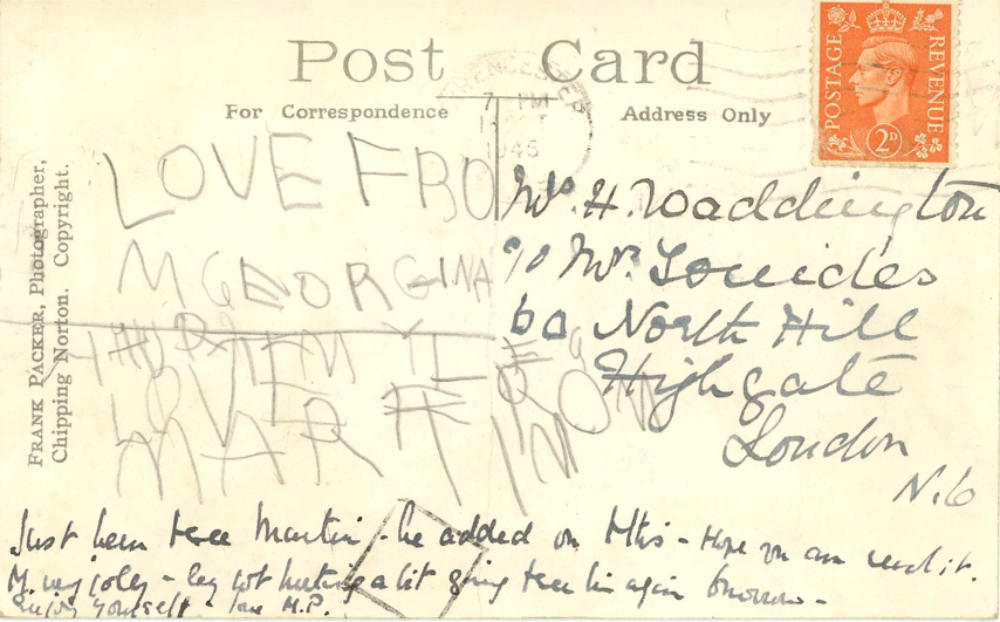 Post Card
For Correspondence
Address Only
POSTAGE REVENUE
2D
7 PM
1945
FRANK PACKER, Photographer,
Chipping Norton. Copyright.
LOVE FRO
M GEORGINA
LOVE FROM
MARTIN
Mrs. H. Waddington
c/o Mrs. Louides
60 North Hill
Highgate
London
N.6
Just been to see Martin - he added on this - Hope you can read it.
M. very jolly - leg not hurting a bit going to see him again tomorrow -
Enjoy yourself - love M.P.